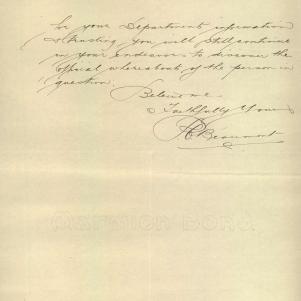 for your Department information
& trusting you will still continue
in your endeavors to discover the
official whereabouts of the person in
question.
Believe me
Faithfully Yours
Beaumont